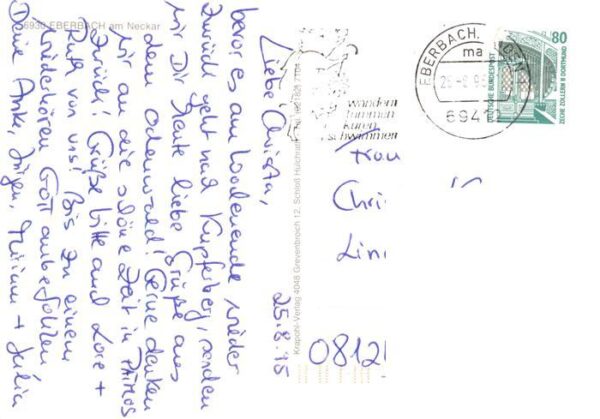 6930 EBERBACH am Neckar
25.8.95
Liebe Christa,
bevor es am Wochenende wieder
zurück geht nach Kupferberg, senden
wir Dir heute liebe Grüße aus
dem Odenwald! Gerne denken
wir an die schöne Zeit in PATMOS
zurück! Grüße bitte auch Lore +
Ruth von uns! Bis zu einem
Wiederhören Gott anbefohlen
Deine Anke, Jürgen, Miriam + Julia
Krapohl-Verlag 4048 Grevenbroich 12, Schloß Hülchrath
EBERBACH,
ma
6941
wandern
kuren
schwimmen
80
DEUTSCHE BUNDESPOST
ZECHE ZOLLERN II DORTMUND
Frau
Chri
Lin
0812